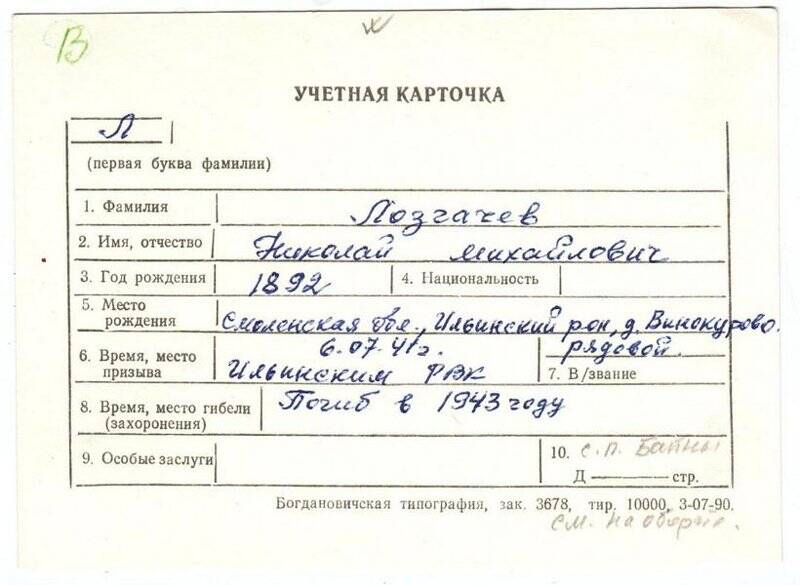 В
УЧЕТНАЯ КАРТОЧКА
Л
(первая буква фамилии)
1. Фамилия Лозгачев
2. Имя, отчество Николай Михайлович
3. Год рождения 1892 4. Национальность
5. Место рождения Смоленская обл., Ильинский рон, д. Винокурово.
6. Время, место призыва 6.07.41г. Ильинским РВК
рядовой.
7. В/звание
8. Время, место гибели (захоронения) Погиб в 1943 году
9. Особые заслуги
10. с.п.
Д — стр.
Богдановичская типография, зак. 3678, тир. 10000, 3-07-90.
см. на обороте.